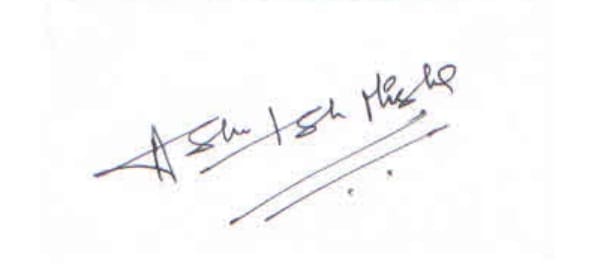 Ashutosh Mishra